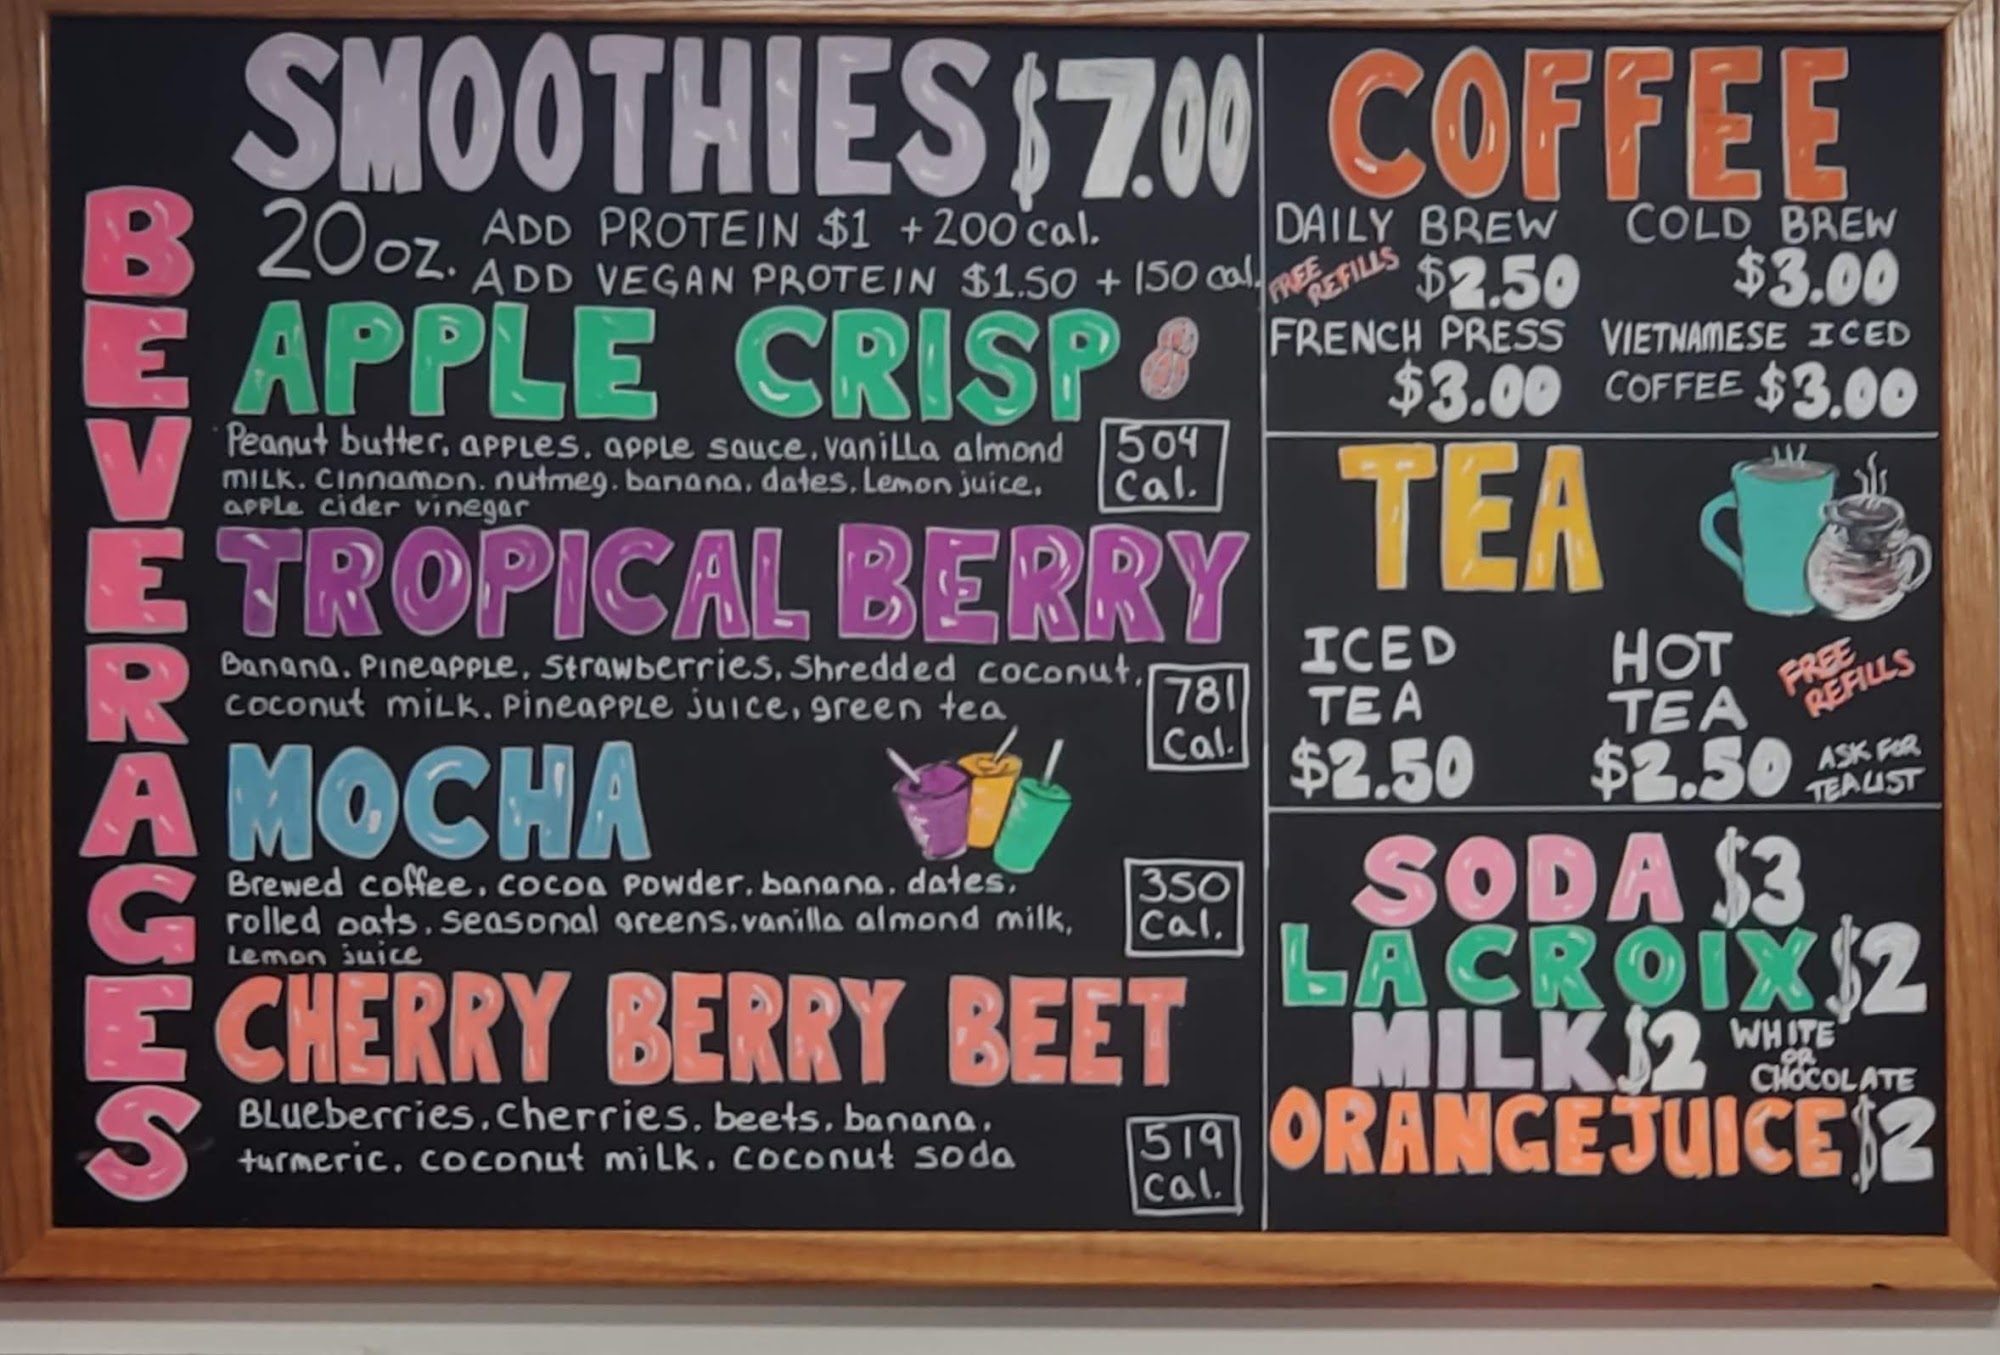 BEVERAGES
SMOOTHIES $7.00
20oz.
ADD PROTEIN $1 +200 cal.
ADD VEGAN PROTEIN $1.50 + 150 cal.
APPLE CRISP
Peanut butter, apples, apple sauce, vanilla almond
milk, cinnamon, nutmeg, banana, dates, Lemon juice,
apple cider vinegar
504
Cal.
TROPICAL BERRY
Banana, Pineapple, Strawberries, Shredded coconut,
coconut milk, Pineapple juice, green tea
781
Cal.
MOCHA
Brewed coffee, cocoa powder, banana, dates,
rolled oats, seasonal greens, vanilla almond milk,
Lemon juice
350
Cal.
CHERRY BERRY BEET
Blueberries, cherries, beets, banana,
turmeric, coconut milk, coconut soda
519
Cal.
COFFEE
DAILY BREW
FREE
REFILLS
$2.50
COLD BREW
$3.00
FRENCH PRESS
$3.00
VIETNAMESE ICED
COFFEE $3.00
TEA
ICED
TEA
$2.50
HOT
TEA
$2.50
FREE
REFILLS
ASK FOR
TEA LIST
SODA $3
LACROIX $2
MILK $2
WHITE
OR
CHOCOLATE
ORANGE JUICE $2